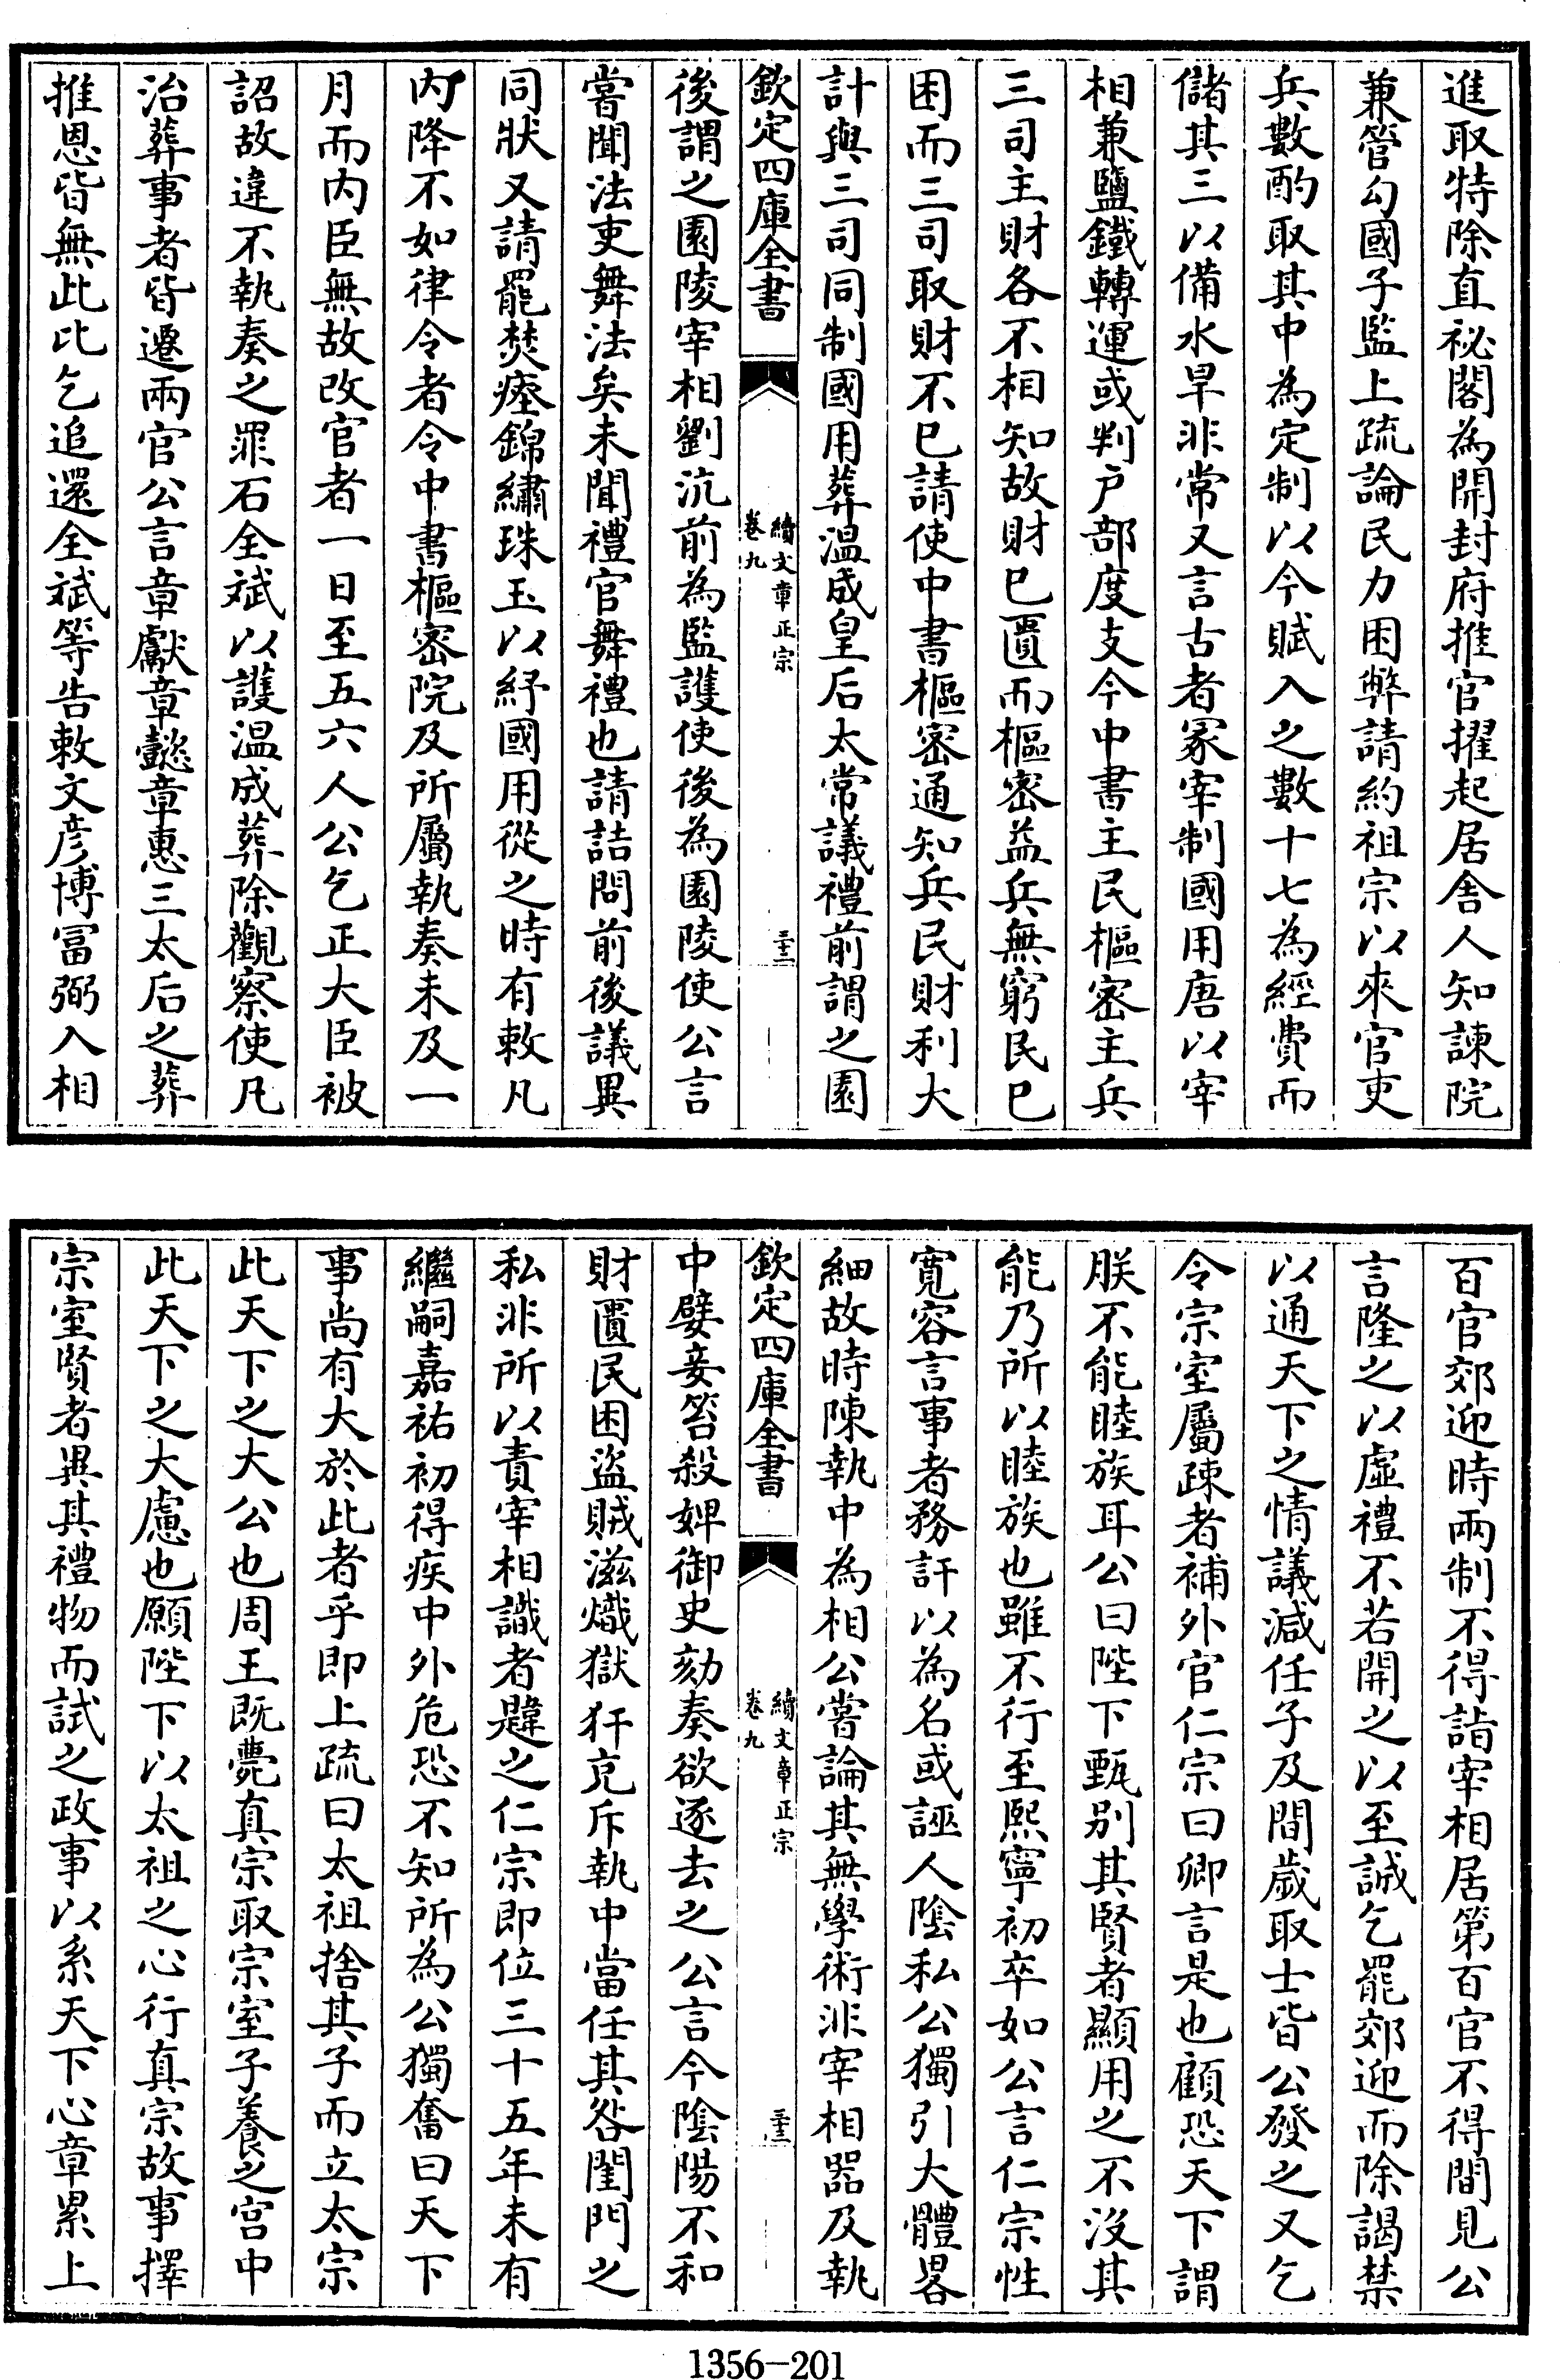 進取特除直祕閣為開封府推官擢起居舍人知諫院
兼管勾國子監上疏論民力困弊請約祖宗以來官吏
兵數酌取其中為定制以今賦入之數十七為經費而
儲其三以備水旱非常又言古者冢宰制國用唐以宰
相兼鹽鐵轉運或判户部度支今中書主民樞密主兵
三司主財各不相知故財已匱而樞密益兵無窮民已
困而三司取財不已請使中書樞密通知兵民財利大
計與三司同制國用葬温成皇后太常議禮前謂之園
欽定四庫全書
續文章正宗
卷九
後謂之園陵宰相劉沆前為監護使後為園陵使公言
嘗聞法吏舞法矣未聞禮官舞禮也請詰問前後議異
同狀又請罷焚瘞錦繡珠玉以紓國用從之時有敕凡
内降不如律令者令中書樞密院及所屬執奏未及一
月而内臣無故改官者一日至五六人公乞正大臣被
詔故違不執奏之罪石全斌以護温成葬除觀察使凡
治葬事者皆遷兩官公言章獻章懿章惠三太后之葬
推恩皆無此比乞追還全斌等告敕文彦博富弼入相
百官郊迎時兩制不得詣宰相居第百官不得間見公
言隆之以虚禮不若開之以至誠乞罷郊迎而除謁禁
以通天下之情議減任子及間歲取士皆公發之又乞
令宗室屬疎者補外官仁宗曰卿言是也顧恐天下謂
朕不能睦族耳公曰陛下甄别其賢者顯用之不沒其
能乃所以睦族也雖不行至熙寧初卒如公言仁宗性
寛容言事者務訐以為名或誣人陰私公獨引大體畧
細故時陳執中為相公嘗論其無學術非宰相器及執
欽定四庫全書
續文章正宗
卷九
中嬖妾笞殺婢御史劾奏欲逐去之公言今陰陽不和
財匱民困盜賊滋熾獄犴充斥執中當任其咎閨門之
私非所以責宰相識者韙之仁宗即位三十五年未有
繼嗣嘉祐初得疾中外危恐不知所為公獨奮曰天下
事尚有大於此者乎即上疏曰太祖捨其子而立太宗
此天下之大公也周王既薨真宗取宗室子養之宫中
此天下之大慮也願陛下以太祖之心行真宗故事擇
宗室賢者異其禮物而試之政事以系天下心章累上
1356-201